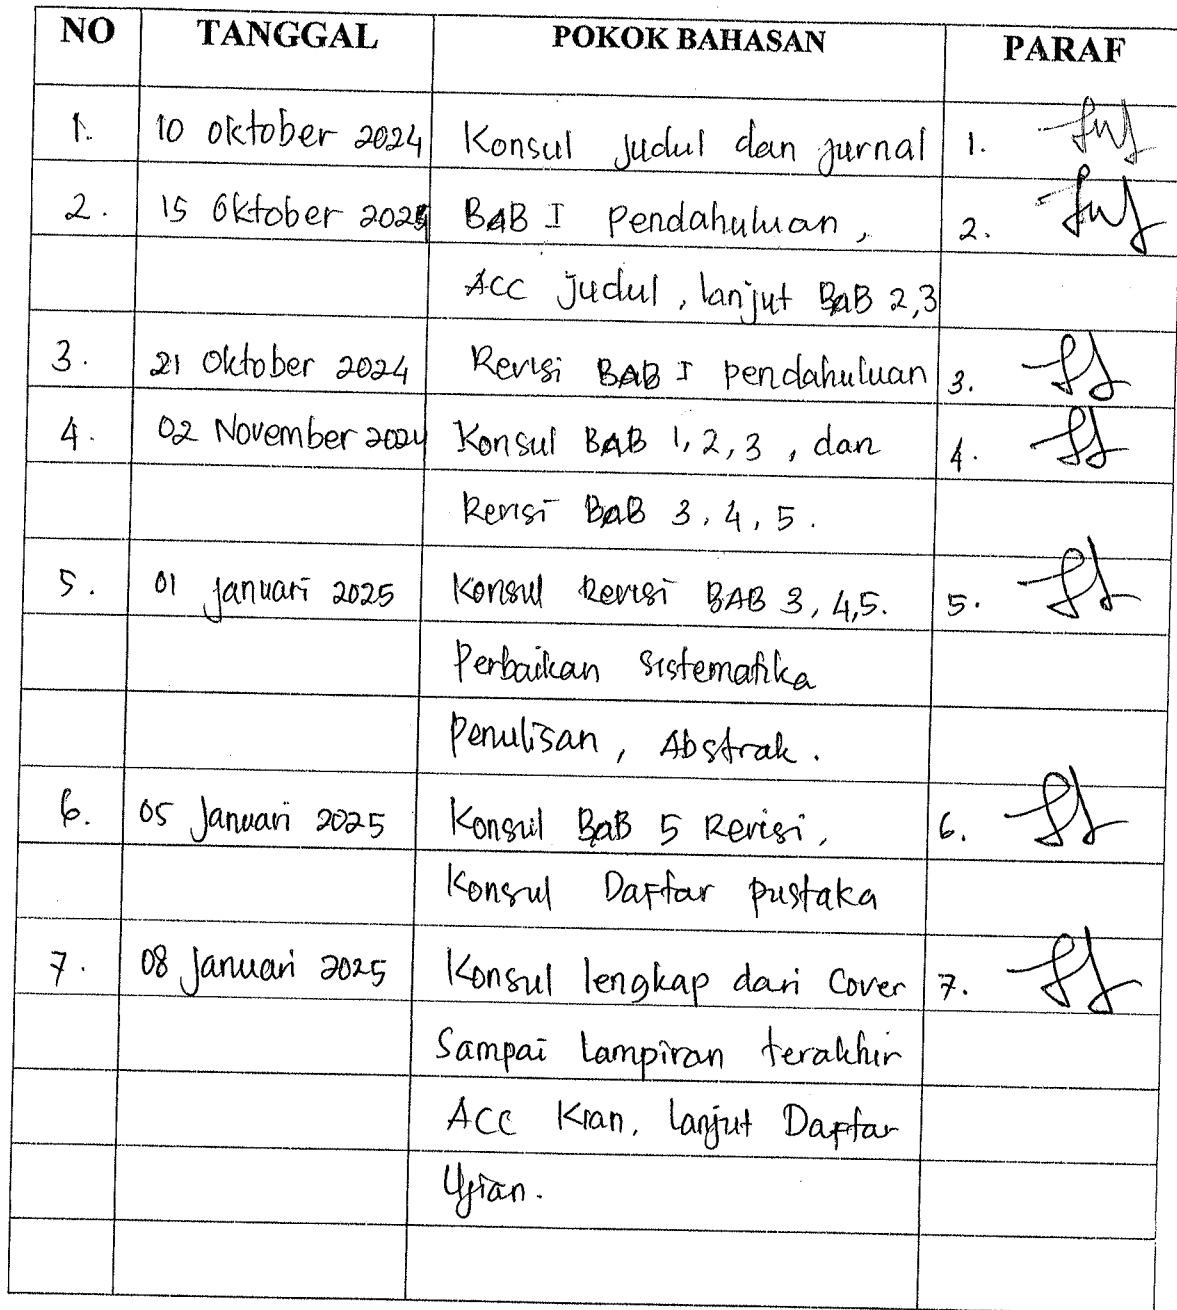 NO TANGGAL POKOK BAHASAN PARAF
1. 10 Oktober 2024 Konsul Judul dan jurnal 1.
2. 15 Oktober 2024 BAB I Pendahuluan, 2.
ACC Judul, lanjut BAB 2,3
3. 21 Oktober 2024 Revisi BAB I pendahuluan 3.
4. 02 November 2024 Konsul BAB 1,2,3, dan 4.
Revisi BAB 3, 4, 5.
5. 01 Januari 2025 Konsul Revisi BAB 3, 4,5. 5.
Perbaikan Sistematika
Penulisan, Abstrak.
6. 05 Januari 2025 Konsul BAB 5 Revisi, 6.
Konsul Daftar pustaka
7. 08 Januari 2025 Konsul lengkap dari Cover 7.
Sampai Lampiran terakhir
ACC Kian, lanjut Daftar
Ujian.